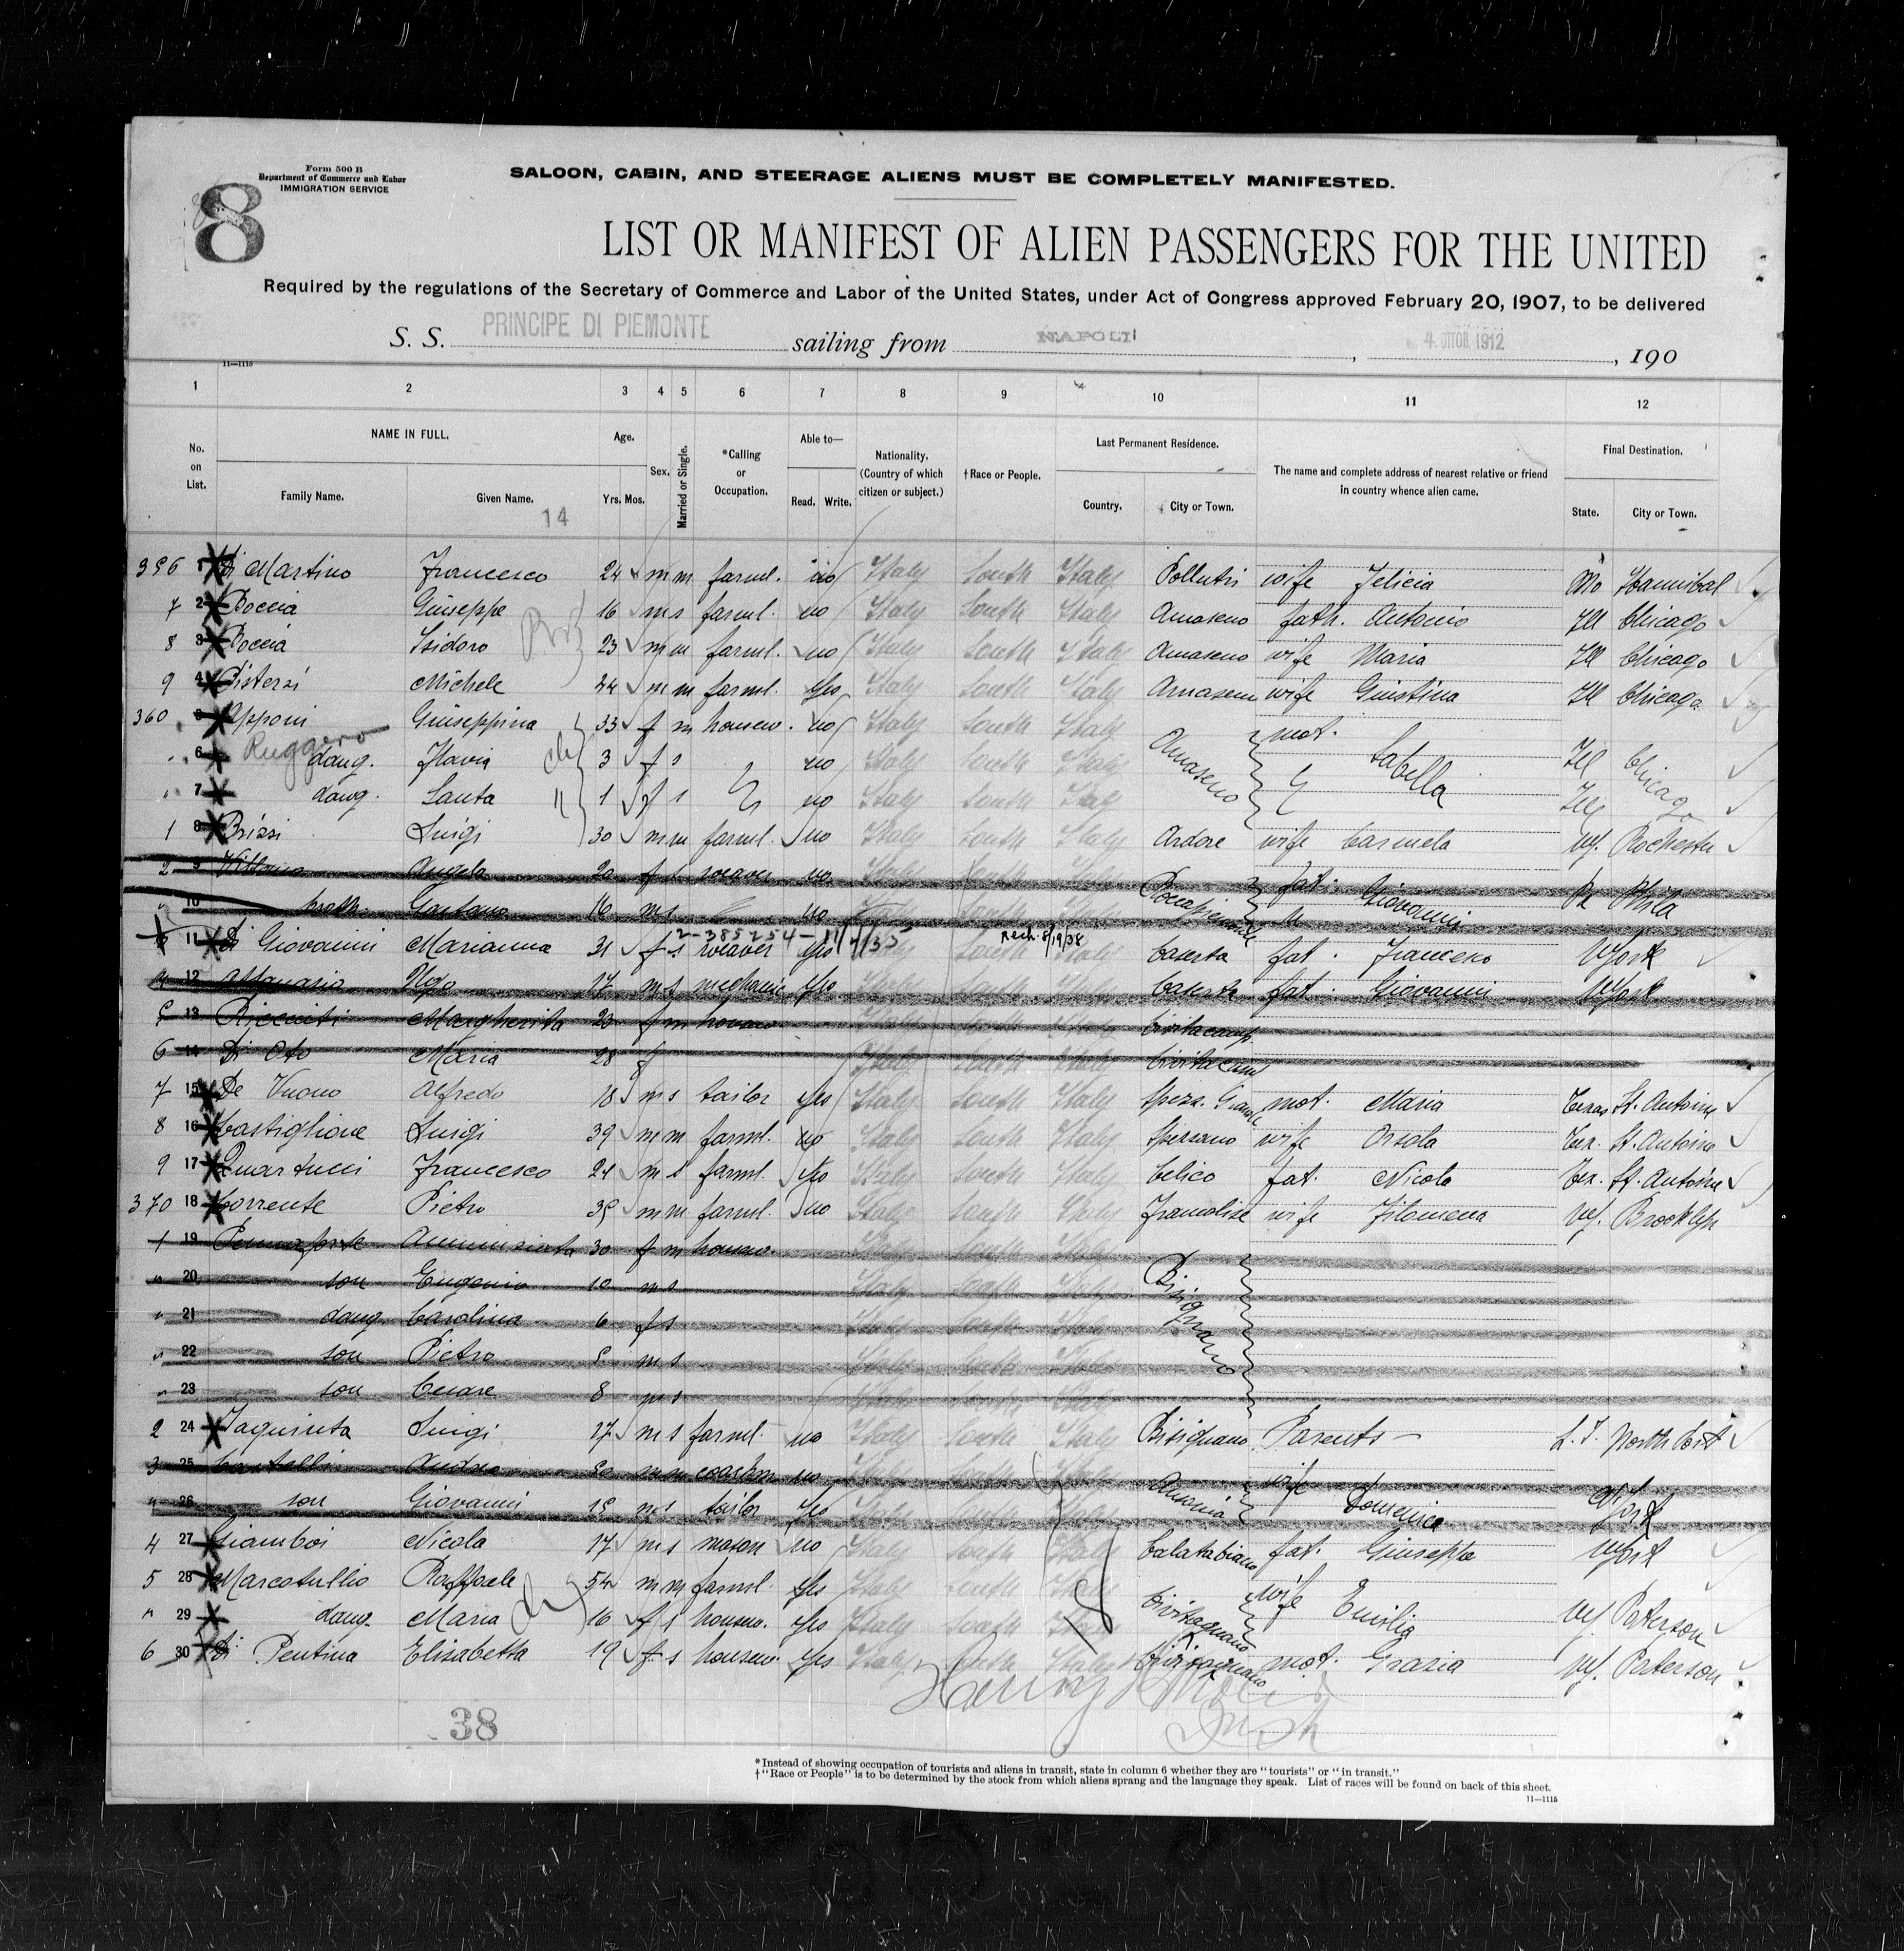 Form 500 B
Department of Commerce and Labor
IMMIGRATION SERVICE
8
SALOON, CABIN, AND STEERAGE ALIENS MUST BE COMPLETELY MANIFESTED.
LIST OR MANIFEST OF ALIEN PASSENGERS FOR THE UNITED
Required by the regulations of the Secretary of Commerce and Labor of the United States, under Act of Congress approved February 20, 1907, to be delivered
S. S. PRINCIPE DI PIEMONTE sailing from NAPOLI, 4. OTTOB. 1912, 190
11—1115
1 2 3 4 5 6 7 8 9 10 11 12
No. on List. NAME IN FULL. Family Name. Given Name. Age. Yrs. Mos. Sex. Married or Single. *Calling or Occupation. Able to— Read. Write. Nationality. (Country of which citizen or subject.) †Race or People. Last Permanent Residence. Country. City or Town. The name and complete address of nearest relative or friend in country whence alien came. Final Destination. State. City or Town.
14
1 Di Martino Francesco 24 m m farml. no Italy South Italy Pollutri wife Felicia Mo Hannibal
7 2 Boccia Giuseppe 16 m s farml. no Italy South Italy Amaseno fath. Antonio Ill Chicago
8 3 Boccia Isidoro 23 m m farml. no Italy South Italy Amaseno wife Maria Ill Chicago
9 4 Pisterzi Michele 44 m m farml. yes Italy South Italy Amaseno wife Giustina Ill Chicago
360 5 Apponi Giuseppina 33 f m housew. no Italy South Italy Amaseno mot. Sabella Ill Chicago
Ruggero
" 6 daug. Flavia 3 f s no Italy South Italy
" 7 daug. Santa 1 f s no Italy South Italy Ill
1 8 Brizzi Luigi 30 m m farml. no Italy South Italy Ardore wife Carmela NY. Rochester
2 9 Angela 20 f s weaver no Italy South Italy fat. Giovanni Pa Phila
" 10 broth. Gaetano 16 m s no
2-385254- Rech. 8/19/38
11 Di Giovanni Marianna 31 f s weaver yes Italy South Italy Caserta fat. Francesco N York
4 12 Ugo 17 m s mechanic yes Italy South Italy Caserta fat. Giovanni N York
5 13 Ricciuti Margherita 23 f m housew Italy South Italy Civitacamp.
6 14 Di Oto Maria 28 f Italy South Italy Civitacamp
7 15 De Vuono Alfredo 18 m s tailor yes Italy South Italy Spezz. Grande mot. Maria Texas St. Antoine
8 16 Castiglione Luigi 39 m m farml. no Italy South Italy Spezzano wife Orsola Tex. St. Antoine
9 17 Quartucci Francesco 24 m s farml. yes Italy South Italy Celico fat. Nicola Tex. St. Antoine
370 18 Corrente Pietro 35 m m farml. no Italy South Italy Francolise wife Filomena NY. Brooklyn
1 19 Annunziata 30 f m housew. Italy South Italy Bisignano
" 20 son Eugenio 10 m s Italy South Italy
" 21 daug. Carolina 6 f s Italy South Italy
" 22 son Pietro 5 m s Italy South Italy
" 23 son Cesare 8 m s Italy South Italy
2 24 Iaquinta Luigi 17 m s farml. no Italy South Italy Bisignano Parents — L. I. North Port
3 25 Andrea 50 m m coachm no Italy South Italy Ausonia wife Domenica N York
" 26 son Giovanni 15 m s tailor yes Italy South Italy
4 27 Giamboi Nicola 17 m s mason no Italy South Italy Calatabiano fat. Giuseppe N York
5 28 Marcotullio Raffaele 54 m m farml. yes Italy South Italy Civitaquana wife Emilia NJ. Paterson
" 29 daug. Maria 16 f s housew. yes Italy South Italy
6 30 Di Pentina Elisabetta 19 f s housew. yes Italy South Italy Civitaquana mot. Grazia NJ. Paterson
38
*Instead of showing occupation of tourists and aliens in transit, state in column 6 whether they are "tourists" or "in transit."
†"Race or People" is to be determined by the stock from which aliens sprang and the language they speak. List of races will be found on back of this sheet.
11—1115